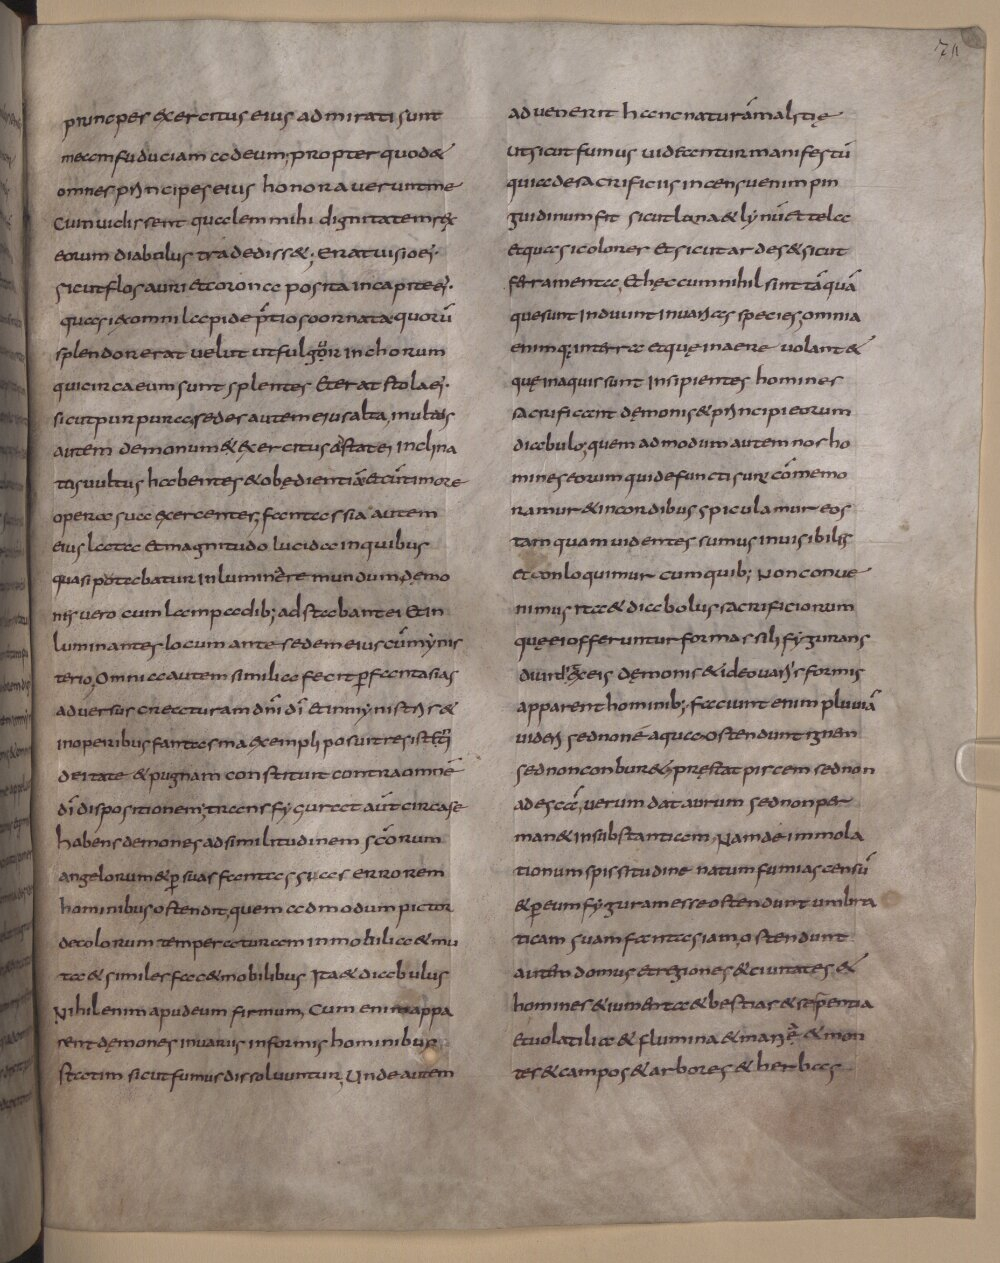 70
principes exercitus eius admirati sunt
meam fiduciam ad eum; propter quod &
omnes principes eius honoraverunt me
Cum vidissent qualem mihi dignitatem rex
eorum diabulus tradediss&; erat visio ei;
sicut flos auri et corona posita in capite ei;
quasi ex omni lapide p̄tioso ornata quorū
splendor erat velut ut fulgor in chorum
qui circa eum sunt splentes Et erat stola ei;
sicut purpura, sedes autem eius alta, multus
autem demonum & exercitus astat ei inclina
tos vultus habentes & obędientiā et cū timore
opera sua exercentes; fantassia autem
eius lata et magnitudo lucida in quibus
quasi putabatur inluminare mundum, dęmo
niis vero cum lampadib; adstabant ei Et in
luminantes locum ante sedem eius cū mynis
terio, Omnia autem similia fecit p fantasias
adversus creaturam dn̄i dī Et in mynistriis &
in operibus fantasma exempli posuit resistens
deitate & pugnam constituit contra omnē
dī dispositionem; transfyguratt aūt circa se
habens demones ad similitudinem sc̄orum
angelorum & p suas fantassias errorem
hominibus ostendit, quem admodum pictur
de colorum temperaturam inmobilia & mu
ta & similes fac& mobilibus Ita & diabulus
Nihil enim apud eum firmum, Cum enim appa
rent dęmones in variis in formis hominibus
statim sicut fumus dissoluuntur, Unde autem
advenerit hanc naturā malitię
ut sicut fumus videantur manifestū
qui ad esacrificiis incensu enim pin
guidinum fit sicut lana & lynū Et tela
Et quasi colores Et sicut ardes & sicut
ferramenta, Et hęc cum nihil sint tā quā
que sunt Induunt In varias species; omnia
enim quę in terra et quę in aere volant &
quę in aquis sunt Insipientes homines
sacrificant dęmonis & principi eorum
diabulo; quem admodum autem nos ho
mines eorum qui defuncti sunt cōmemo
ramur & in cordibus spiculamur eos
tam quam videntes sumus invisibilis
et conloquimur cum quib; Non conve
nimus Ita & diabolus sacrificiorum
quę ei offeruntur formas sili fygurans
dęmonis & ideo variis formis
apparent hominib; faciunt enim pluviā
videri sed non é aqua, Ostendunt ignem
sed non conbur&, prestat piscem sed non
ad escā, verum dat aurum sed non per
man& in substantiam, Nam de immola
tionum spissitudine natum fumi ascensū
& p eum fyguram esse ostendunt umbra
ticam suam fantasiam, ostendunt
autem domus et regiones & civitates &
homines & iumenta & bestias & serpentia
Et volatilia & flumina & & mon
tes & campos & arbores & herbas